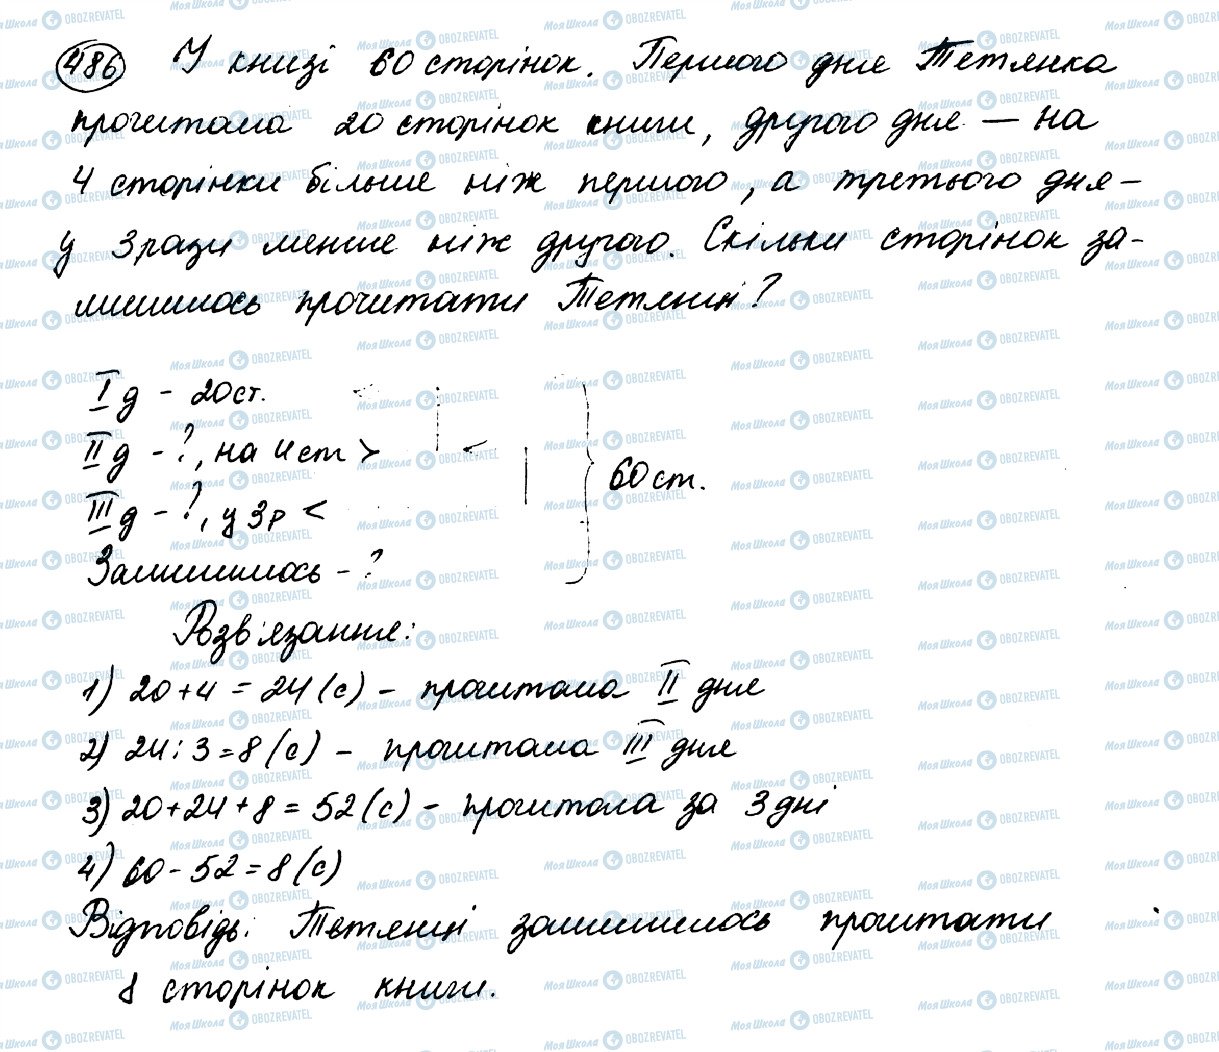 486 У книзі 60 сторінок. Першого дня Тетянка
прочитала 20 сторінок книги, другого дня — на
4 сторінки більше ніж першого, а третього дня –
у 3 рази менше ніж другого. Скільки сторінок за-
лишилось прочитати Тетянці?
I д - 20 ст.
II д - ?, на 4 ст >
III д - ?, у 3 р <
60 ст.
Залишилось - ?
Розв'язання:
1) 20 + 4 = 24 (с) - прочитала II дня
2) 24 : 3 = 8 (с) - прочитала III дня
3) 20 + 24 + 8 = 52 (с) - прочитала за 3 дні
4) 60 - 52 = 8 (с)
Відповідь: Тетянці залишилось прочитати
8 сторінок книги.
МояШкола OBOZREVATEL